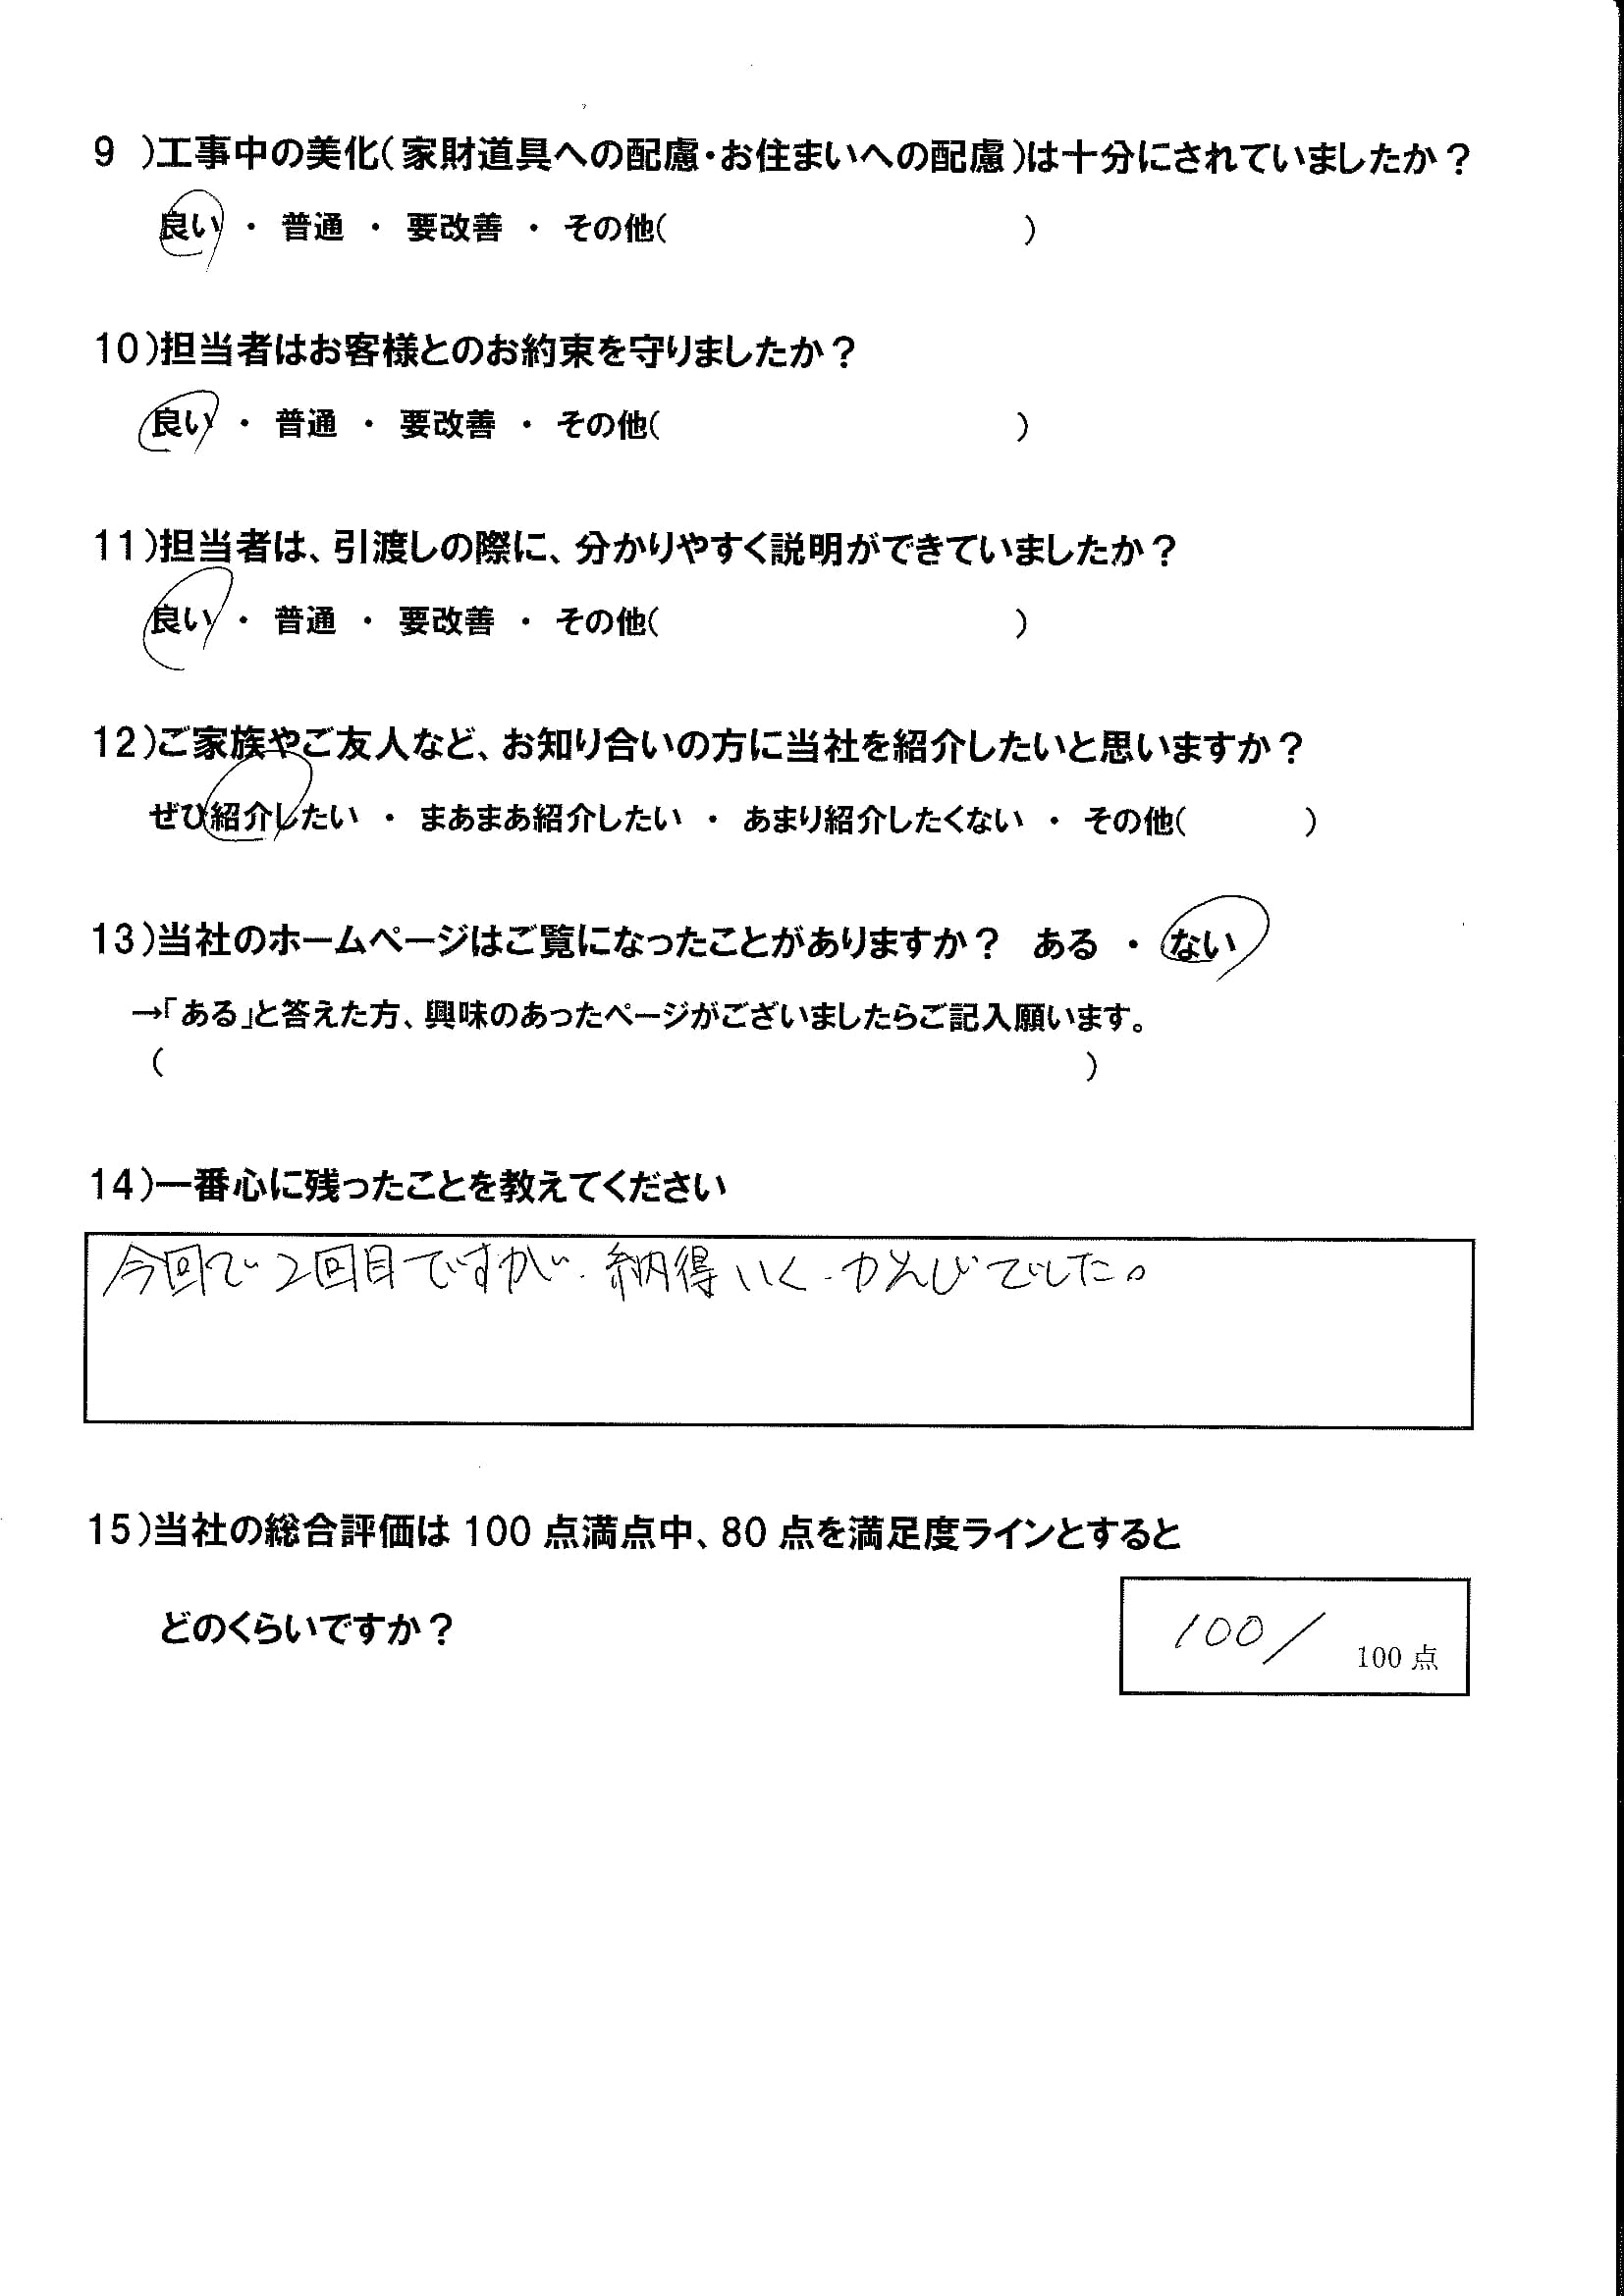 9 )工事中の美化(家財道具への配慮・お住まいへの配慮)は十分にされていましたか?
良い ・ 普通 ・ 要改善 ・ その他( )
10)担当者はお客様とのお約束を守りましたか?
良い ・ 普通 ・ 要改善 ・ その他( )
11)担当者は、引渡しの際に、分かりやすく説明ができていましたか?
良い ・ 普通 ・ 要改善 ・ その他( )
12)ご家族やご友人など、お知り合いの方に当社を紹介したいと思いますか?
ぜひ紹介したい ・ まあまあ紹介したい ・ あまり紹介したくない ・ その他( )
13)当社のホームページはご覧になったことがありますか? ある ・ ない
→「ある」と答えた方、興味のあったページがございましたらご記入願います。
( )
14)一番心に残ったことを教えてください
今回で2回目ですが、納得いく でした。
15)当社の総合評価は 100 点満点中、80 点を満足度ラインとすると
どのくらいですか?
100/ 100 点